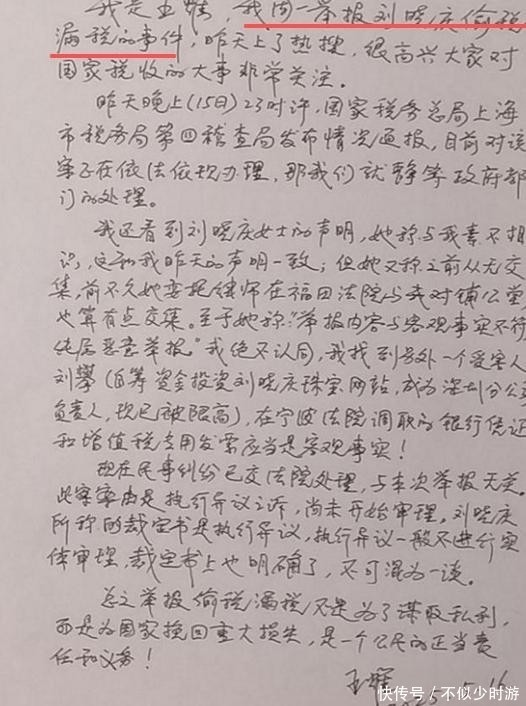 我是王 ，我周一举报刘晓庆偷税
漏税的事件，昨天上了热搜，很高兴大家对
国家税收的大事非常关注。
昨天晚上(15日)23时许，国家税务总局上海
市税务局第四稽查局发布情况通报，目前对该
案正在依法依规办理，那我们就静等政府部
门的处理。
我还看到刘晓庆女士的声明，她称与我素不相
识，这和我昨天的声明一致；但她又称之前从无交
集，前不久她委托律师在福田法院与我对铺公堂
也算有点交集。至于她称"举报内容与客观事实不符
纯属恶意举报。"我绝不认同，我找到另外一个受害人
刘 (自筹资金投资刘晓庆珠宝网站，成为深圳分公司
负责人，现已被限高)，在宁波法院调取的银行凭证
和增值税专用发票应当是客观事实！
现在民事纠纷已交法院处理，与本次举报无关。
此案案由是执行异议之诉，尚未开始审理。刘晓庆
所称的裁定书是执行异议，执行异议一般不进行实
体审理，裁定书上也明确了，不可混为一谈。
总之举报偷税漏税不是为了谋取私利，
而是为国家挽回重大损失，是一个公民的正当责
任和义务！
王
2025.5.16
快传号/不似少时游